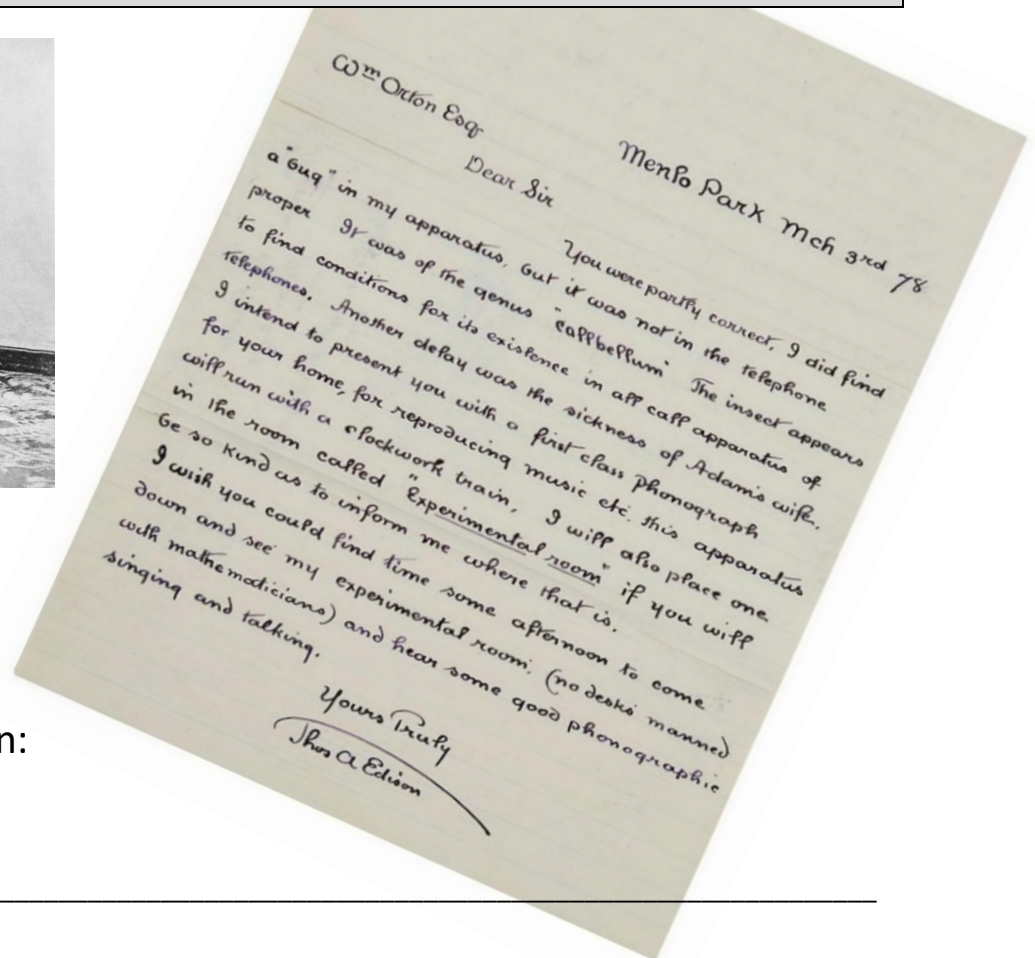 Wm Orton Esq
Menlo Park Mch 3rd 78
Dear Sir
You were partly correct, I did find
a "bug" in my apparatus, but it was not in the telephone
proper It was of the genus "callbellum" The insect appears
to find conditions for its existence in all call apparatus of
telephones. Another delay was the sickness of Adams wife.
I intend to present you with a first class phonograph
for your home, for reproducing music etc. this apparatus
will run with a clockwork train, I will also place one
in the room called "Experimental room" if you will
be so kind as to inform me where that is.
I wish you could find time some afternoon to come
down and see my experimental room. (no desks manned
with mathematicians) and hear some good phonographic
singing and talking.
Yours Truly
Thos A Edison
n: